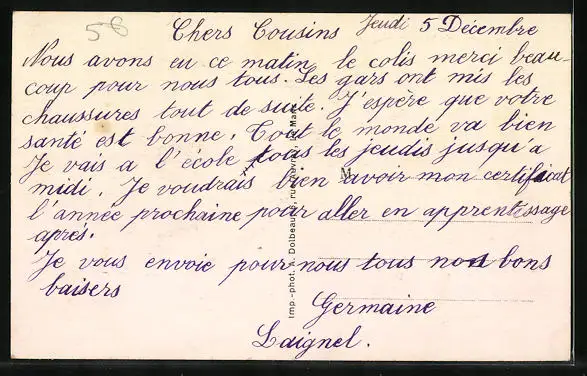 58
Jeudi 5 Décembre
Chers Cousins
Nous avons eu ce matin le colis merci beau-
coup pour nous tous. Les gars ont mis les
chaussures tout de suite. J'espère que votre
santé est bonne. Tout le monde va bien
Je vais a l'école tous les jeudis jusqu'a
midi. Je voudrais bien avoir mon certificat
l'année prochaine pour aller en apprentissage
aprés.
Je vous envoie pour nous tous nos bons
baisers
Germaine
Laignel.
Imp.-phot. A. Dolbeau